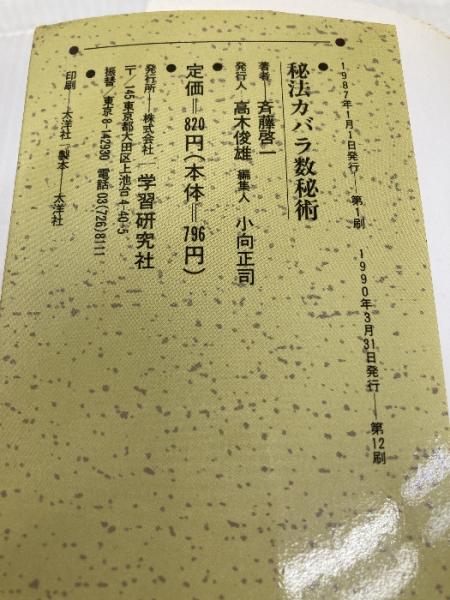 1987年1月1日発行──第1刷　1990年3月31日発行──第12刷
秘法カバラ数秘術
著者──斉藤啓一
発行人──高木俊雄　編集人──小向正司
定価＝820円（本体＝796円）
発行所──株式会社　学習研究社
〒145 東京都大田区上池台4-40-5
振替／東京8-142930　電話03(726)8111
印刷──太洋社　製本──太洋社